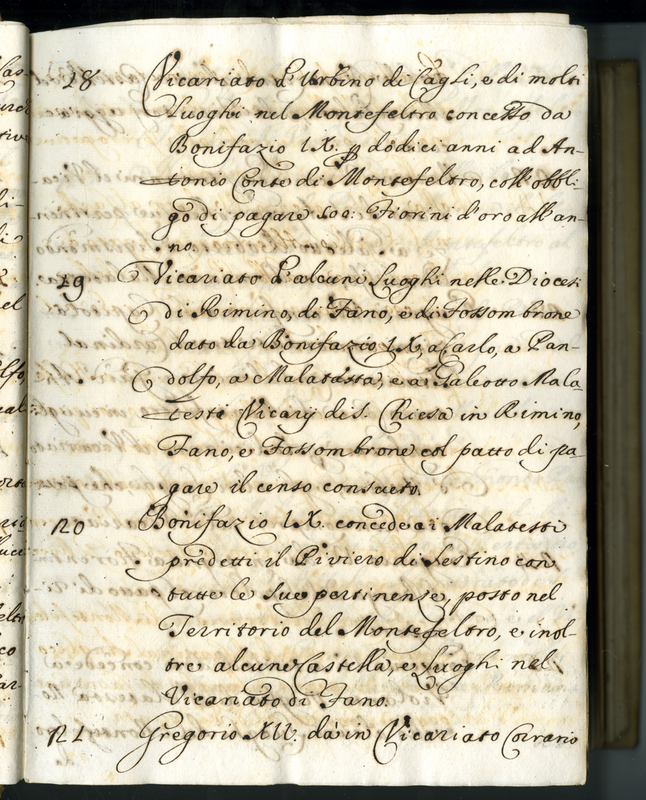 18 Vicariato d'Urbino di Cagli, e di molti
Luoghi nel Montefeltro concesso da
Bonifazio IX. p dodici anni ad An-
tonio Conte di Montefeltro, coll'obbli-
go di pagare 500: Fiorini d'oro all'an-
no.
19 Vicariato d'alcuni Luoghi nelle Diocesi
di Rimino, di Fano, e di Fossombrone
dato da Bonifazio IX, a Carlo, a Pan-
dolfo, a Malatasta, e a Galeotto Mala-
testi Vicarij di S. Chiesa in Rimino,
Fano, e Fossombrone col patto di pa-
gare il censo consueto.
120 Bonifazio IX. concede ai Malatesti
predetti il Piviero di Sestino con
tutte le sue pertinenze, posto nel
Territorio del Montefeltro, e inol-
tre alcune Castella, e Luoghi nel
Vicariato di Fano.
121 Gregorio XII. dà in Vicariato Corrario